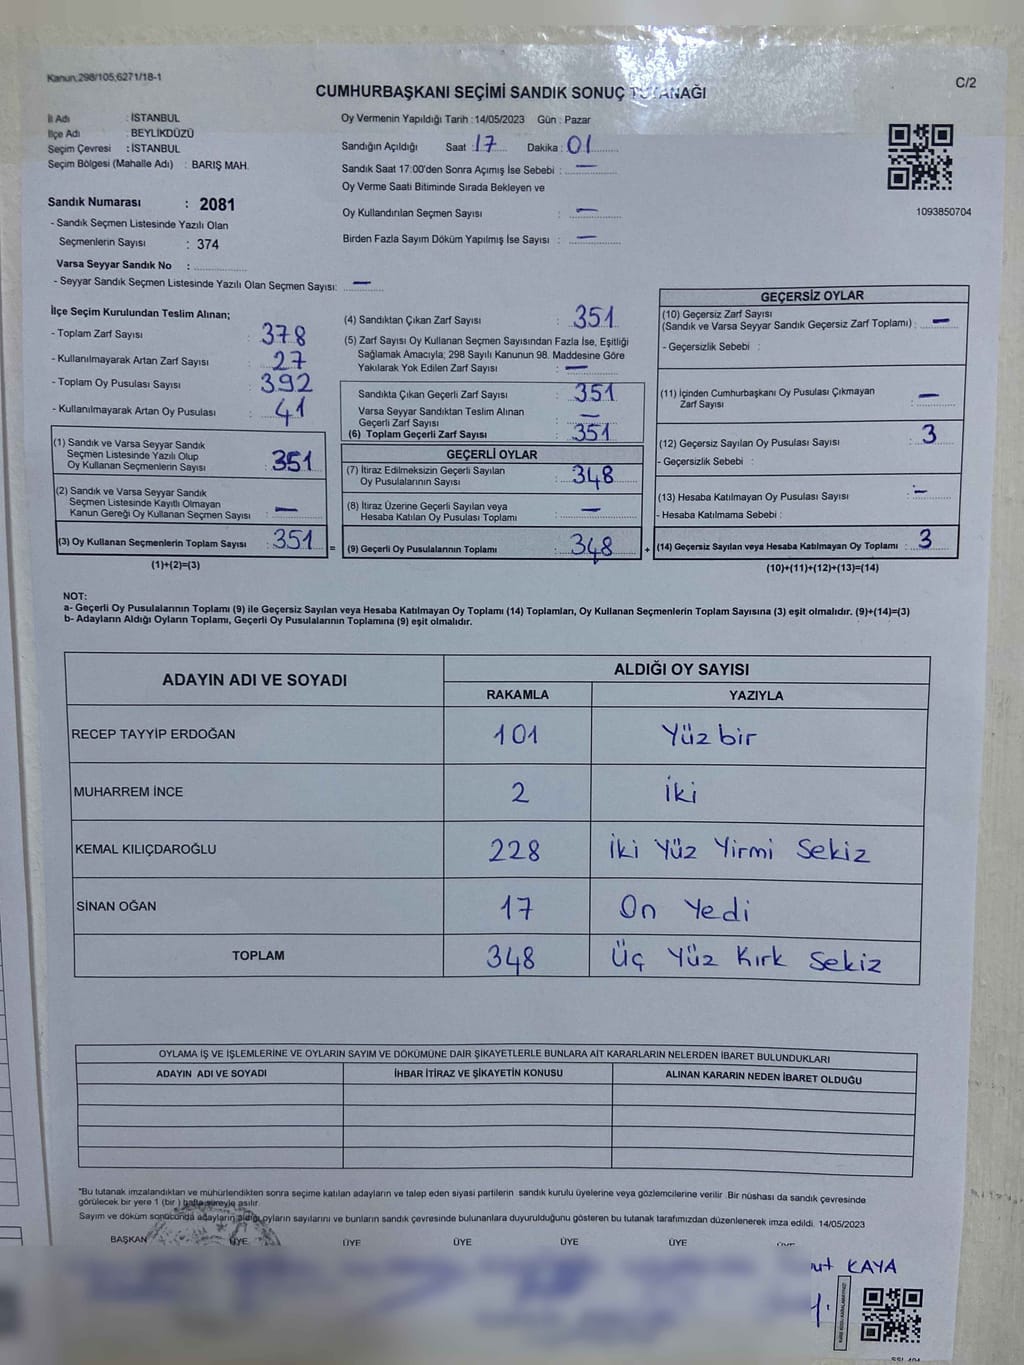 Kanun,298/105,6271/18-1
C/2
CUMHURBAŞKANI SEÇİMİ SANDIK SONUÇ TUTANAĞI
İl Adı : İSTANBUL
İlçe Adı : BEYLİKDÜZÜ
Seçim Çevresi : İSTANBUL
Seçim Bölgesi (Mahalle Adı) : BARIŞ MAH.
Sandık Numarası : 2081
- Sandık Seçmen Listesinde Yazılı Olan
Seçmenlerin Sayısı : 374
Varsa Seyyar Sandık No :
- Seyyar Sandık Seçmen Listesinde Yazılı Olan Seçmen Sayısı: —
Oy Vermenin Yapıldığı Tarih : 14/05/2023 Gün : Pazar
Sandığın Açıldığı Saat : 17 Dakika : 01
Sandık Saat 17:00'den Sonra Açımış İse Sebebi : —
Oy Verme Saati Bitiminde Sırada Bekleyen ve
Oy Kullandırılan Seçmen Sayısı : —
Birden Fazla Sayım Döküm Yapılmış İse Sayısı : —
1093850704
İlçe Seçim Kurulundan Teslim Alınan;
- Toplam Zarf Sayısı : 378
- Kullanılmayarak Artan Zarf Sayısı : 27
- Toplam Oy Pusulası Sayısı : 392
- Kullanılmayarak Artan Oy Pusulası : 41
(1) Sandık ve Varsa Seyyar Sandık
Seçmen Listesinde Yazılı Olup
Oy Kullanan Seçmenlerin Sayısı : 351
(2) Sandık ve Varsa Seyyar Sandık
Seçmen Listesinde Kayıtlı Olmayan
Kanun Gereği Oy Kullanan Seçmen Sayısı : —
(3) Oy Kullanan Seçmenlerin Toplam Sayısı : 351 =
(1)+(2)=(3)
(4) Sandıktan Çıkan Zarf Sayısı : 351
(5) Zarf Sayısı Oy Kullanan Seçmen Sayısından Fazla İse, Eşitliği
Sağlamak Amacıyla; 298 Sayılı Kanunun 98. Maddesine Göre
Yakılarak Yok Edilen Zarf Sayısı : —
Sandıkta Çıkan Geçerli Zarf Sayısı : 351
Varsa Seyyar Sandıktan Teslim Alınan
Geçerli Zarf Sayısı : —
(6) Toplam Geçerli Zarf Sayısı : 351
GEÇERLİ OYLAR
(7) İtiraz Edilmeksizin Geçerli Sayılan
Oy Pusulalarının Sayısı : 348
(8) İtiraz Üzerine Geçerli Sayılan veya
Hesaba Katılan Oy Pusulası Toplamı : —
(9) Geçerli Oy Pusulalarının Toplamı : 348 +
GEÇERSİZ OYLAR
(10) Geçersiz Zarf Sayısı
(Sandık ve Varsa Seyyar Sandık Geçersiz Zarf Toplamı) : —
- Geçersizlik Sebebi :
(11) İçinden Cumhurbaşkanı Oy Pusulası Çıkmayan
Zarf Sayısı : —
(12) Geçersiz Sayılan Oy Pusulası Sayısı : 3
- Geçersizlik Sebebi :
(13) Hesaba Katılmayan Oy Pusulası Sayısı : —
- Hesaba Katılmama Sebebi :
(14) Geçersiz Sayılan veya Hesaba Katılmayan Oy Toplamı : 3
(10)+(11)+(12)+(13)=(14)
NOT:
a- Geçerli Oy Pusulalarının Toplamı (9) ile Geçersiz Sayılan veya Hesaba Katılmayan Oy Toplamı (14) Toplamları, Oy Kullanan Seçmenlerin Toplam Sayısına (3) eşit olmalıdır. (9)+(14)=(3)
b- Adayların Aldığı Oyların Toplamı, Geçerli Oy Pusulalarının Toplamına (9) eşit olmalıdır.
ADAYIN ADI VE SOYADI ALDIĞI OY SAYISI
RAKAMLA YAZIYLA
RECEP TAYYİP ERDOĞAN 101 Yüz bir
MUHARREM İNCE 2 İki
KEMAL KILIÇDAROĞLU 228 İki Yüz Yirmi Sekiz
SİNAN OĞAN 17 On Yedi
TOPLAM 348 Üç Yüz Kırk Sekiz
OYLAMA İŞ VE İŞLEMLERİNE VE OYLARIN SAYIM VE DÖKÜMÜNE DAİR ŞİKAYETLERLE BUNLARA AİT KARARLARIN NELERDEN İBARET BULUNDUKLARI
ADAYIN ADI VE SOYADI İHBAR İTİRAZ VE ŞİKAYETİN KONUSU ALINAN KARARIN NEDEN İBARET OLDUĞU
"Bu tutanak imzalandıktan ve mühürlendikten sonra seçime katılan adayların ve talep eden siyasi partilerin sandık kurulu üyelerine veya gözlemcilerine verilir .Bir nüshası da sandık çevresinde
görülecek bir yere 1 (bir ) hafta süreyle asılır.
Sayım ve döküm sonucunda adayların aldığı oyların sayılarını ve bunların sandık çevresinde bulunanlara duyurulduğunu gösteren bu tutanak tarafımızdan düzenlenerek imza edildi. 14/05/2023
BAŞKAN ÜYE ÜYE ÜYE ÜYE ÜYE
KAYA